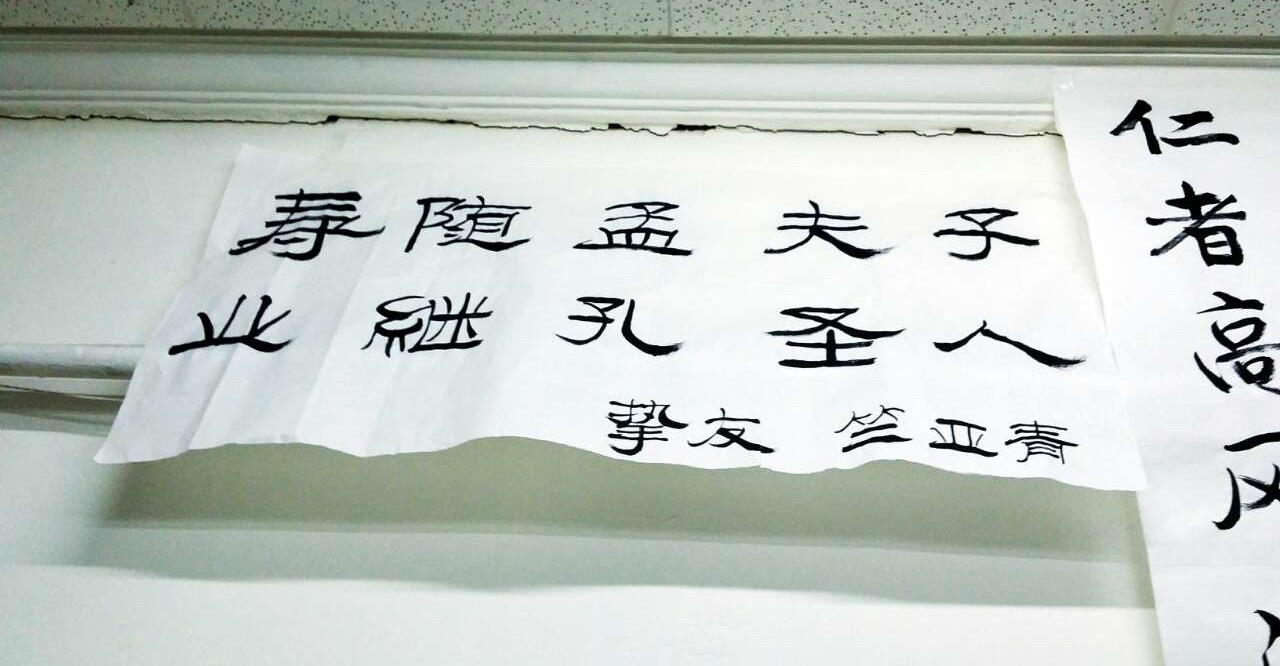 寿随孟夫子
业継孔圣人
挚友 竺亚青
仁者高风